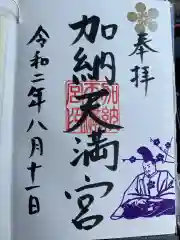 奉拝
加納天満宮
令和二年八月十一日